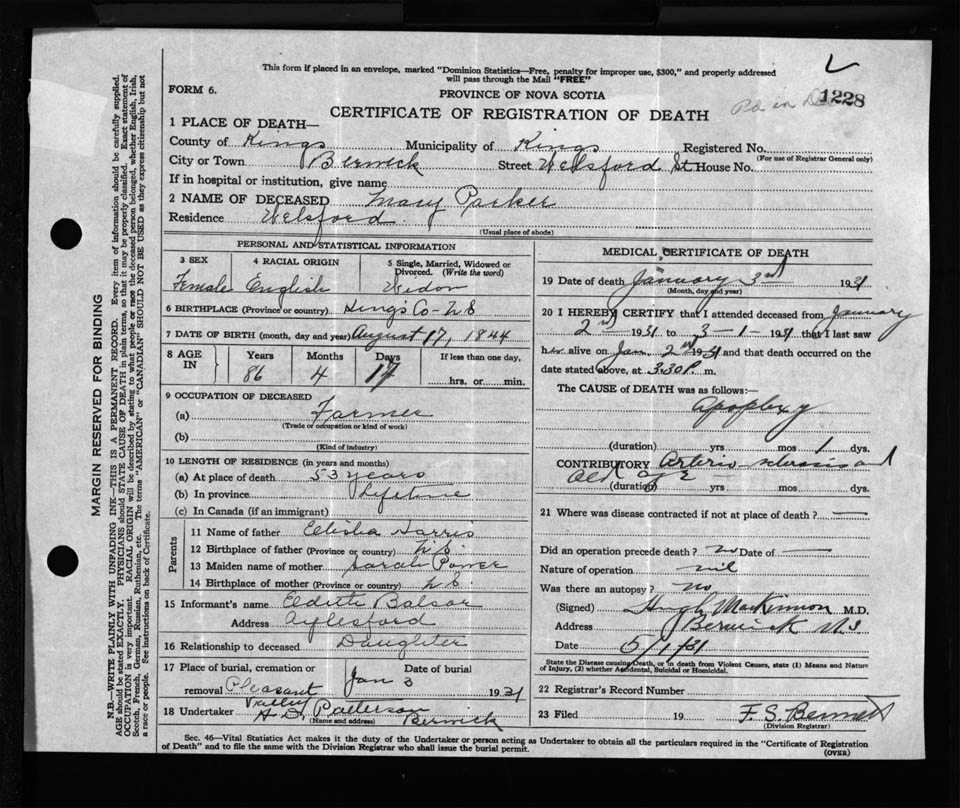 This form if placed in an envelope, marked "Dominion Statistics—Free, penalty for improper use, $300," and properly addressed
will pass through the Mail "FREE"
FORM 6.
PROVINCE OF NOVA SCOTIA
Pd in
1228
CERTIFICATE OF REGISTRATION OF DEATH
1 PLACE OF DEATH—
County of Kings Municipality of Kings Registered No.
(For use of Registrar General only)
City or Town Berwick Street Welsford St. House No.
If in hospital or institution, give name
2 NAME OF DECEASED Mary Parker
Residence Welsford
(Usual place of abode)
PERSONAL AND STATISTICAL INFORMATION
3 SEX 4 RACIAL ORIGIN 5 Single, Married, Widowed or
Divorced. (Write the word)
Female English Widow
6 BIRTHPLACE (Province or country) Kings Co N S
7 DATE OF BIRTH (month, day and year) August 17, 1844
8 AGE IN Years Months Days If less than one day,
86 4 17 hrs. or min.
9 OCCUPATION OF DECEASED
(a) Farmer
(Trade or occupation or kind of work)
(b)
(Kind of industry)
10 LENGTH OF RESIDENCE (in years and months)
(a) At place of death 53 years
(b) In province Lifetime
(c) In Canada (if an immigrant)
Parents
11 Name of father Elisha Harris
12 Birthplace of father (Province or country) N S.
13 Maiden name of mother Sarah Power
14 Birthplace of mother (Province or country) N S
15 Informant's name Balsor
Address Aylesford
16 Relationship to deceased Daughter
17 Place of burial, cremation or Date of burial
removal Pleasant Valley Jan 3 1931
18 Undertaker A. S. Patterson
(Name and address) Berwick
MEDICAL CERTIFICATE OF DEATH
19 Date of death January 3rd 1931
(Month, day and year)
20 I HEREBY CERTIFY that I attended deceased from January
2nd 1931 to 3-1-1931 that I last saw
her alive on Jan. 2nd 1931 and that death occurred on the
date stated above, at 3.30 P. m.
The CAUSE of DEATH was as follows:—
Apoplexy
(duration) yrs mos 1 dys.
CONTRIBUTORY Arterio sclerosis and
old age
(duration) yrs mos dys.
21 Where was disease contracted if not at place of death? —
Did an operation precede death? no Date of —
Nature of operation nil
Was there an autopsy? no
(Signed) Hugh MacKinnon M.D.
Address Berwick N.S.
Date 5/1/31
State the Disease causing Death, or in death from Violent Causes, state (1) Means and Nature
of Injury, (2) whether Accidental, Suicidal or Homicidal.
22 Registrar's Record Number
23 Filed 19 F. S. Bennett
(Division Registrar)
Sec. 46—Vital Statistics Act makes it the duty of the Undertaker or person acting as Undertaker to obtain all the particulars required in the "Certificate of Registration
of Death" and to file the same with the Division Registrar who shall issue the burial permit.
(OVER)
MARGIN RESERVED FOR BINDING
N.B.—WRITE PLAINLY WITH UNFADING INK—THIS IS A PERMANENT RECORD. Every item of information should be carefully supplied.
AGE should be stated EXACTLY. PHYSICIANS should STATE CAUSE OF DEATH in plain terms, so that it may be properly classified. Exact statement of
OCCUPATION is very important. RACIAL ORIGIN will be described by stating to what people or race the deceased person belonged, whether English, Irish,
Scotch, French, German, Russian, Ruthenian, etc. The terms "AMERICAN" or "CANADIAN" SHOULD NOT BE USED as they express citizenship but not
a race or people. See instructions on back of Certificate.